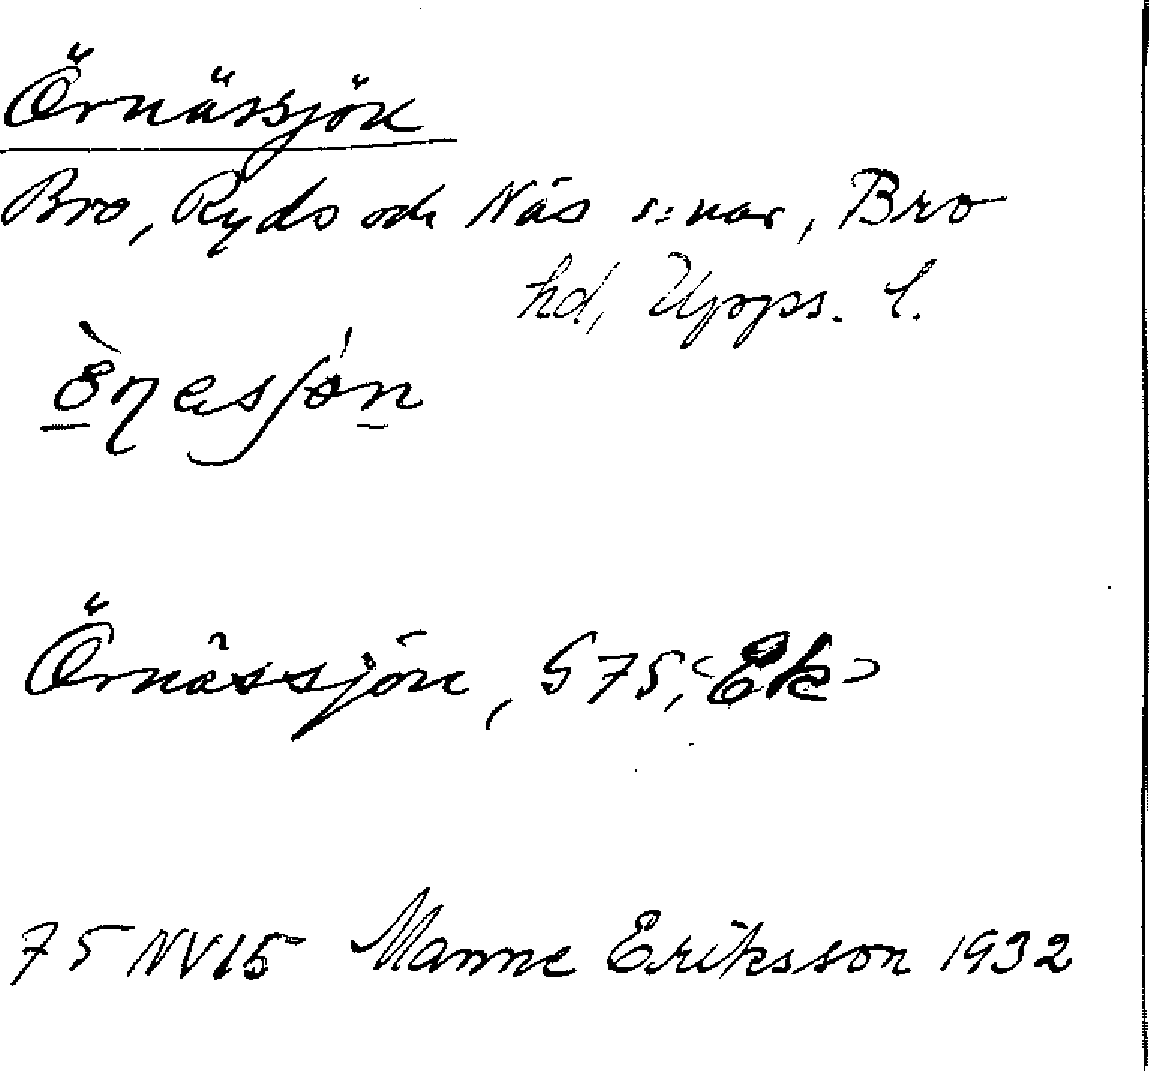 Örnässjön
Bro, Ryds och Näs s:nar, Bro
hd, Upps. l.
Örnässjön, G 75, <Ek>
75 NV 15 Manne Eriksson 1932